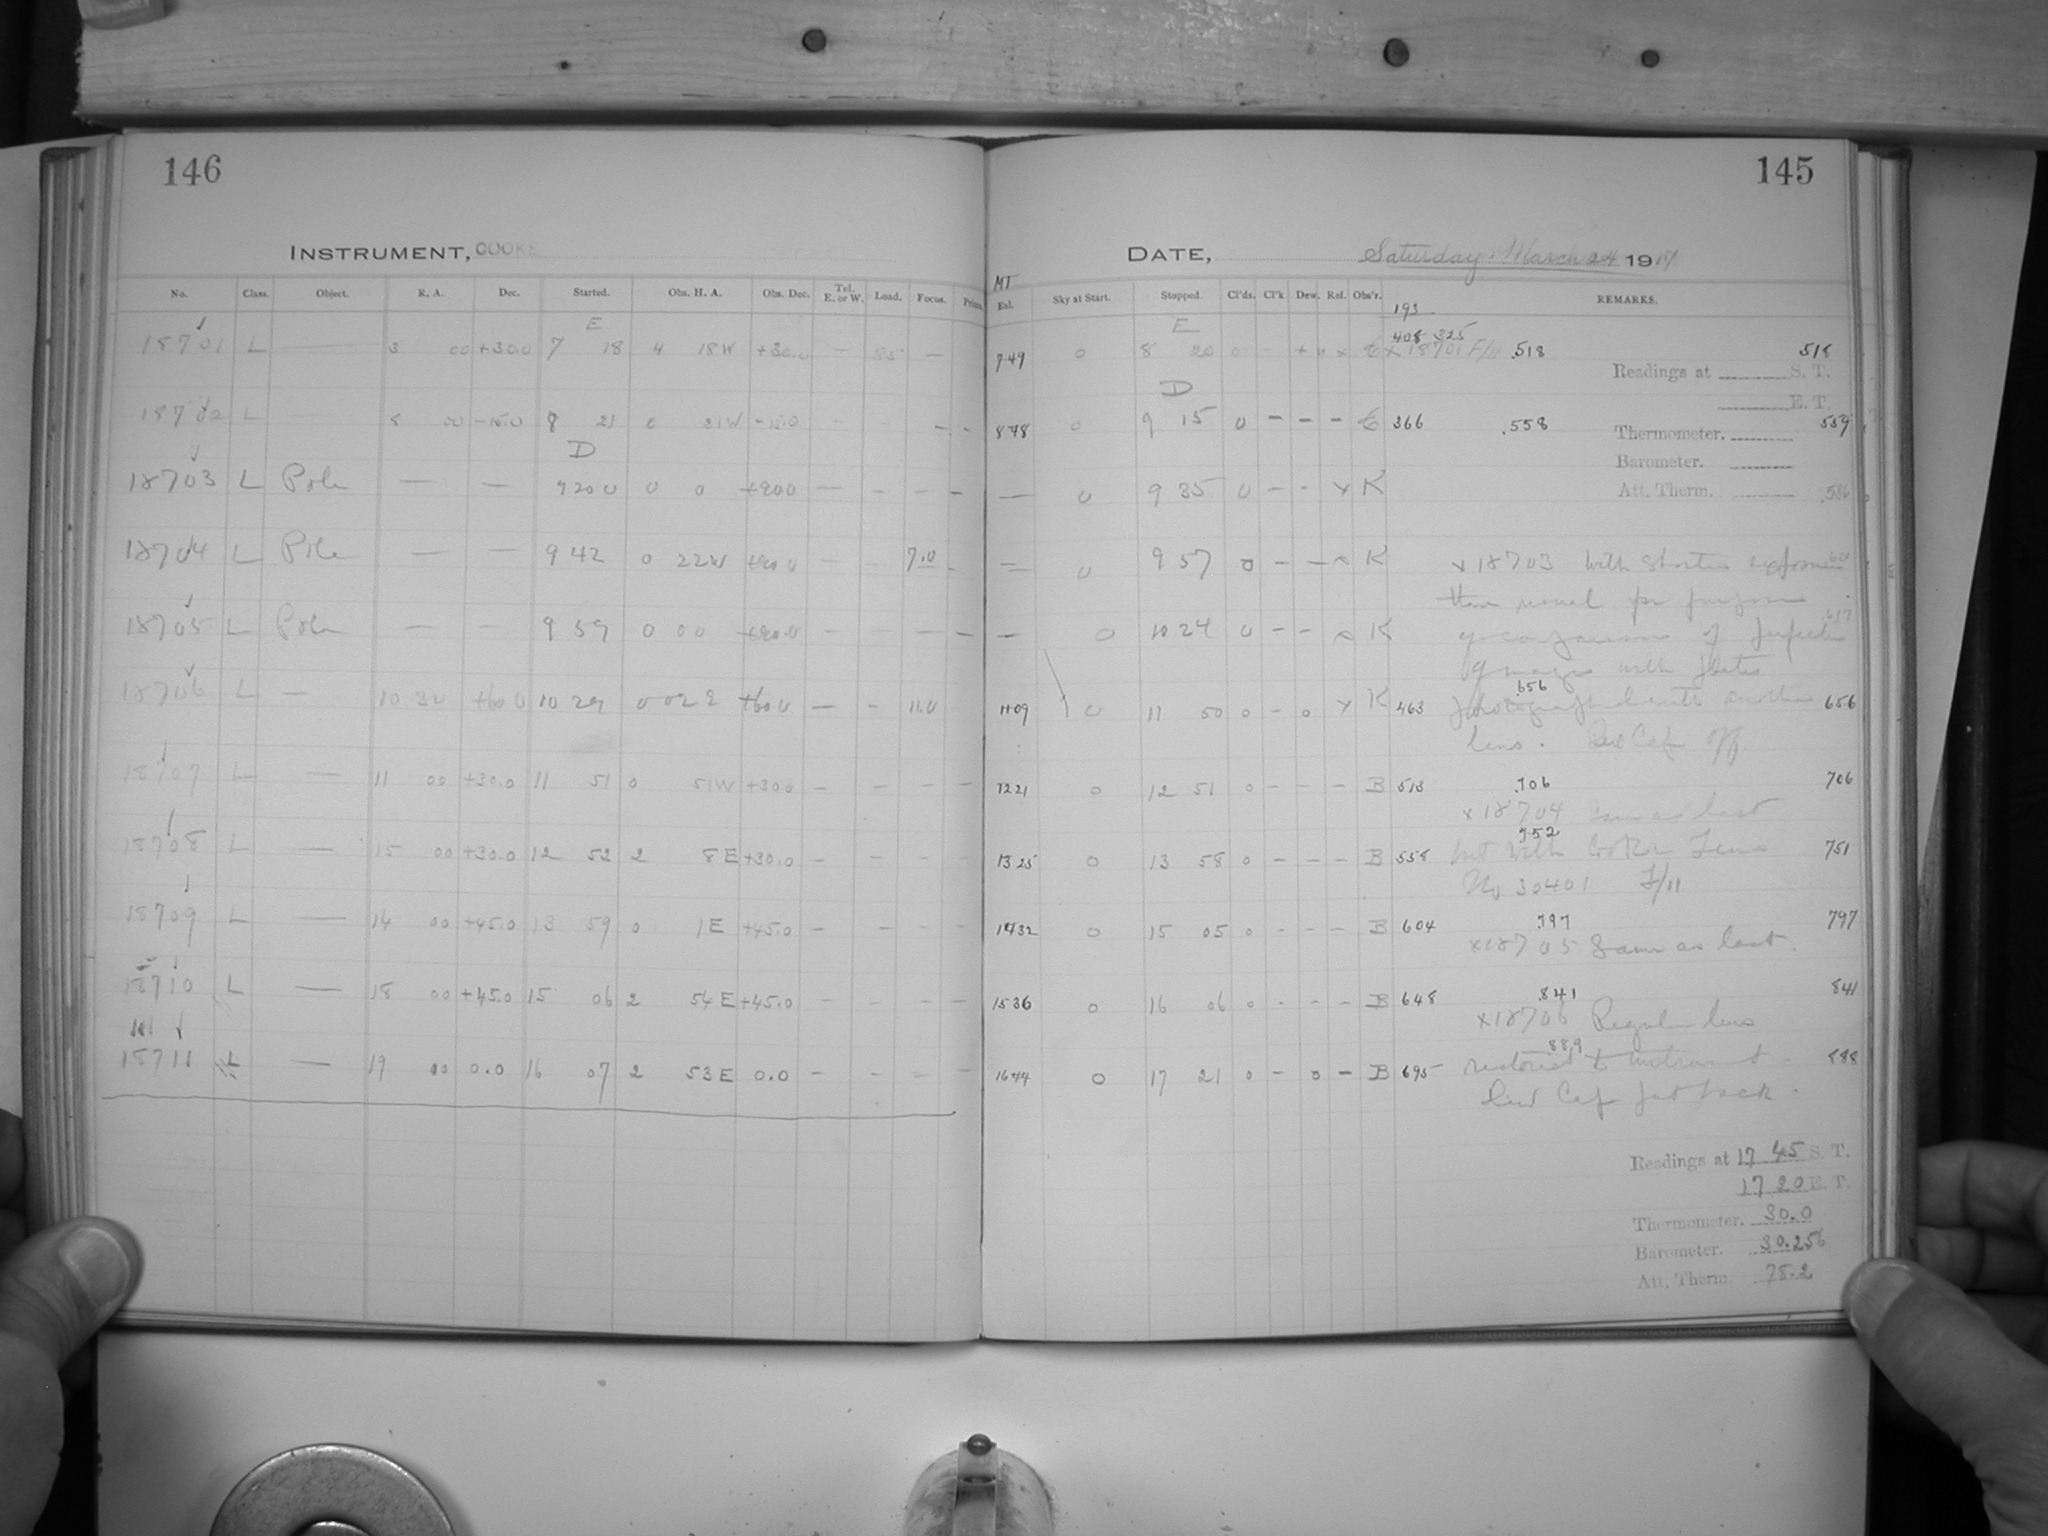 146
INSTRUMENT, COOKE
No. Class. Object. R. A. Dec. Started. Obs. H. A. Obs. Dec. Tel. E. or W. Load. Focus. Prism
E
18701 L — 3 00 +30.0 7 18 4 18 W +30.0 — 85 —
18702 L — 8 00 -15.0 8 21 0 21 W -15.0 — - — -
D
18703 L Pole — — 9 20 0 0 0 +90 0 — - - -
18704 L Pole — — 9 42 0 22 W +90 0 — - 7.0 -
18705 L Pole — — 9 59 0 00 +90.0 — - - -
18706 L — 10 30 +60 0 10 29 0 02 E +60 0 — - 11.0
18707 L — 11 00 +30.0 11 51 0 51 W +30 0 - - - -
18708 L — 15 00 +30.0 12 52 2 8 E +30.0 - - - -
18709 L — 14 00 +45.0 13 59 0 1 E +45.0 - - - -
18710 L — 18 00 +45.0 15 06 2 54 E +45.0 - - - -
18711 L — 19 00 0.0 16 07 2 53 E 0.0 - - - -
145
DATE, Saturday March 24 1917
MT
Eal. Sky at Start. Stopped. Cl'ds. Cl'k Dew. Ref. Obs'r. REMARKS.
193
E
408 325
749 0 8 20 0 - x 18701 F/11 .518 518
Readings at S. T.
E. T.
D
878 0 9 15 0 - - - 366 .558 559
Thermometer.
Barometer.
— 0 9 35 0 - - x K
Att. Therm. .586
0 9 57 0 - - K x 18703 With shorter exposure
than usual for purpose
— 0 10 24 0 - - K of comparison of perfection .617
of images with plates
.656
1109 0 11 50 0 - 0 x K 463 photographed with another 656
lens. Dew Cap off
1221 0 12 51 0 - - - B 513 .706 706
x 18704 Same as last
.752
1325 0 13 58 0 - - - B 558 but with Cooke Lens 751
No 30401 F/11
1432 0 15 05 0 - - - B 604 .797 797
x 18705 Same as last.
1536 0 16 06 0 - - - B 648 .841 841
x 18706 Regular lens
889
1644 0 17 21 0 - 0 - B 695 restored to instrument - 888
Dew Cap put back.
Readings at 17 45 S. T.
17 20 E. T.
Thermometer. 30.0
Barometer. 30.256
Att. Therm. 75.2